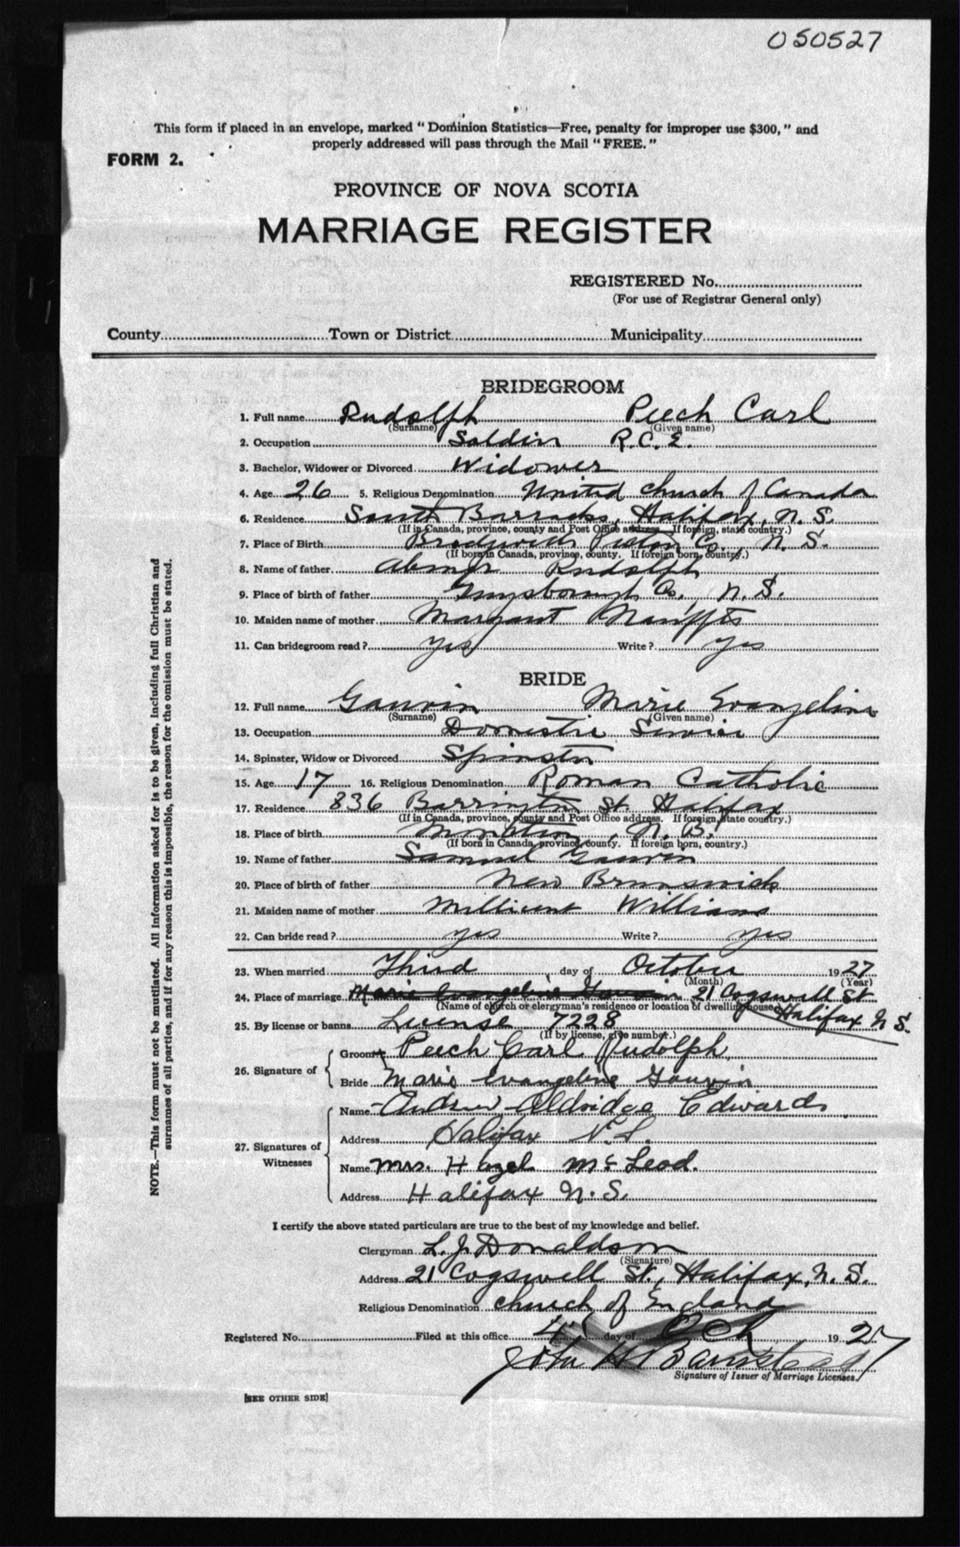 050527
This form if placed in an envelope, marked "Dominion Statistics—Free, penalty for improper use $300," and
properly addressed will pass through the Mail "FREE."
FORM 2.
PROVINCE OF NOVA SCOTIA
MARRIAGE REGISTER
REGISTERED No.
(For use of Registrar General only)
County Town or District Municipality
BRIDEGROOM
1. Full name Rudolph Peech Carl
(Surname) (Given name)
2. Occupation R.C.E.
3. Bachelor, Widower or Divorced Widower
4. Age 26 5. Religious Denomination United Church of Canada
6. Residence South Barracks, Halifax, N.S.
(If in Canada, province, county and Post Office address. If foreign, state country.)
7. Place of Birth Co., N.S.
(If born in Canada, province, county. If foreign born, country.)
8. Name of father Abner Rudolph
9. Place of birth of father Guysborough Co., N.S.
10. Maiden name of mother Margaret
11. Can bridegroom read? yes Write? yes
BRIDE
12. Full name Gauvin Marie Evangeline
(Surname) (Given name)
13. Occupation Domestic Service
14. Spinster, Widow or Divorced Spinster
15. Age 17 16. Religious Denomination Roman Catholic
17. Residence 836 Barrington St. Halifax
(If in Canada, province, county and Post Office address. If foreign, state country.)
18. Place of birth Moncton, N.B.
(If born in Canada, province, county. If foreign born, country.)
19. Name of father Samuel Gauvin
20. Place of birth of father New Brunswick
21. Maiden name of mother Millicent Williams
22. Can bride read? yes Write? yes
23. When married Third day of October 1927
(Month) (Year)
24. Place of marriage Marie Evangeline Gauvin 21 Cogswell St.
(Name of church or clergyman's residence or location of dwelling house)
Halifax N.S.
25. By license or banns License 7228
(If by license, give number.)
26. Signature of
Groom Peech Carl Rudolph
Bride Marie Evangeline Gauvin
27. Signatures of Witnesses
Name Andrew Aldridge Edwards
Address Halifax N.S.
Name Mrs. Hazel McLeod.
Address Halifax N.S.
I certify the above stated particulars are true to the best of my knowledge and belief.
Clergyman L. J. Donaldson
(Signature)
Address 21 Cogswell St., Halifax, N.S.
Religious Denomination Church of England
Registered No. Filed at this office 4 day of Oct 1927
John H Barnstead
Signature of Issuer of Marriage Licenses.
[SEE OTHER SIDE]
NOTE.—This form must not be mutilated. All information asked for is to be given, including full Christian and
surnames of all parties, and if for any reason this is impossible, the reason for the omission must be stated.